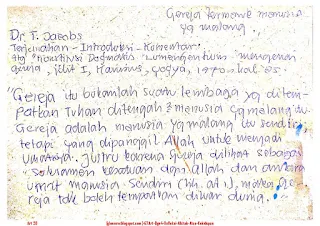 Gereja termasuk manusia
yg malang.
Dr. T. Jacobs
Terjemahan - Introduksi - Komentar.
ttg "Konstitusi Dogmatis Lumen Gentium" mengenai
Gereja, jilit I, Kanisius, Yogya, 1970. hal. 85
"Gereja itu bukanlah suatu lembaga yg ditem-
patkan Tuhan ditengah2 manusia yg malang itu.
Gereja adalah manusia yg malang itu sendiri
tetapi yang dipanggil Allah untuk menjadi
umatnya. Justru karena Gereja dilihat sebagai
sakramen kesatuan dgn Allah dan antara
umat manusia sendiri (lih. art. 1), maka Ge-
reja tak boleh tempatkan diluar dunia."